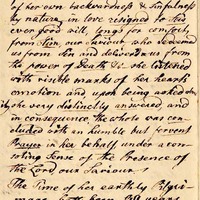 of her own backwardness & sinfulness
by nature, in love resigned to His
ever good will, longs for comfort,
from Him, our Saviour who redeemed
us from Sin and delivered us from
the power of Death &c. she listened
with visible marks of her hearts
emotion and upon being asked
she very distinctly answered, and
in consequence the whole was con-
cluded with an humble but fervent
Prayer in her behalf under a con-
soling Sense of the Presence of
the Lord our Saviour.
The Time of her earthly Pilgri-
mage hath been years